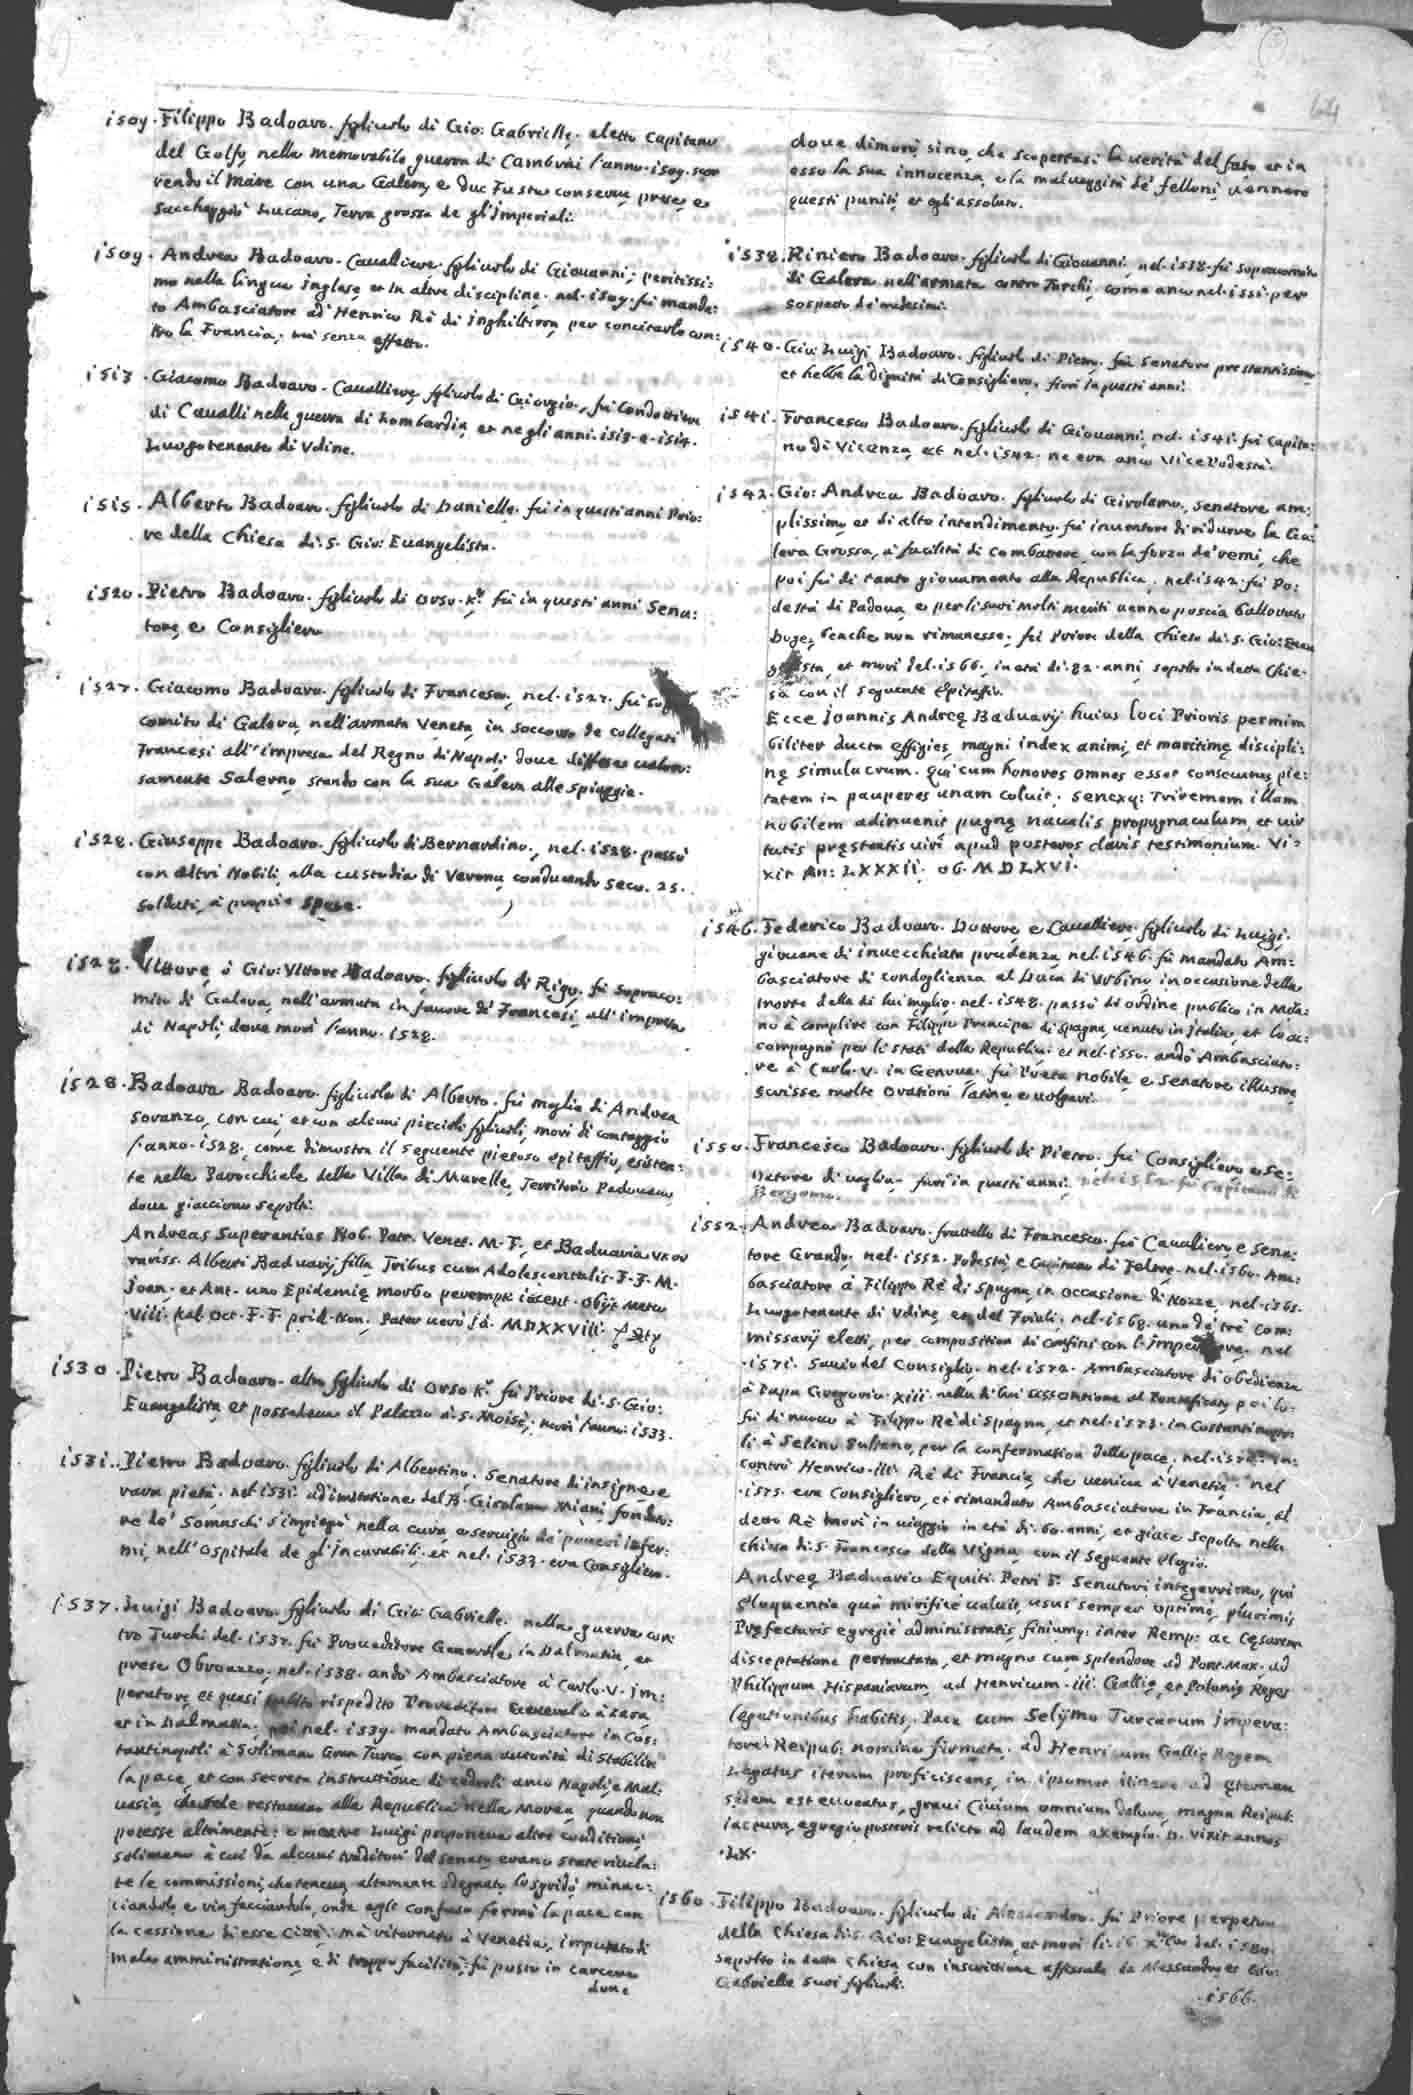 64
i509. Filippo Badoaro. figliuolo di Gio: Gabrielle. eletto Capitano
del Golfo nella memorabile guerra di Cambrai l'anno. i509. scor
rendo il Mare con una Galera, e due Fuste conserve, prese, e
saccheggiò Lucano, Terra grossa de gl'Imperiali.
i509. Andrea Badoaro. Cavalliere. figliuolo di Giovanni; peritissi:
mo nella lingua Inglese et in altre discipline. nel. i509. fù manda:
to Ambasciatore ad Henrico Rè di Inghilterra per concitarlo con:
tro la Francia; mà senza effetto.
i5i3. Giacomo Badoaro. Cavalliere, figliuolo di Giorgio., fù Condottiere
di Cavalli nelle guerra di Lombardia, et ne gli anni. i5i3. e. i5i4.
Luogotenente di Vdine.
i5i5. Alberto Badoaro. figliuolo di Danielle. fù in questi anni Prio:
re della Chiesa di. S. Gio: Euangelista.
i520. Pietro Badoaro. figliuolo di Orso. Kr. fù in questi anni Sena:
tore, e Consigliero
i527. Giacomo Badoaro. figliuolo di Francesco, nel. i527. fù
comito di Galera, nell'armata Veneta, in soccorso de collegati
Francesi all'impresa del Regno di Napoli; doue difese valoro:
samente Salerno, stando con la sua Galera alle spiaggie.
i528. Giuseppe Badoaro. figliuolo di Bernardino., nel. i528. passò
con altri Nobili, alla custodia di Verona, conducendo seco. 25.
soldati, à proprie spese.
i528. Vittore, ò Gio: Vittore Badoaro. figliuolo di Rigo. fù Sopraco:
mito di Galera, nell'armata in fauore de' Francesi, all'impresa
di Napoli, doue morì l'anno. i528.
i528. Badoara Badoaro. figliuola di Alberto. fù moglie di Andrea
Soranzo, con cui, et con alcuni piccioli figliuoli, morì di contaggio
l'anno. i528. come dimostra il seguente pietoso epitaffio, esisten:
te nella Parocchiale della Villa di Murelle, Territorio Padouano,
doue giacciono sepolti.
Andreas Superantius Nob. Patr. Venet. M. F., et Baduaria vxor
rariss. Alberti Baduarij filia, Tribus cum Adolescentulis. F. F. M.
Joan. et Ant. uno Epidemię morbo perempti iacent. Obijt Mater
Viii. Kal. Oct. F. F. prid. Non. Pater uerò Id. MDXXViii.
i530. Pietro Badoaro. altro figliuolo di Orso Kr. fù Priore di. S. Gio:
Euangelista, et possedeua il Palazzo à. S. Moisè; morì l'anno i533.
i53i. Pietro Badoaro. figliuolo di Albertino., Senatore di insigne, e
rara pietà. nel i53i. ad imitatione del B. Girolamo Miani fondato:
re de' Somaschi s'impiegò nella cura, e seruigio de' poueri infer:
mi, nell'Ospitale de gl'Incurabili. et nel. i533. era Consigliero.
i537. Luigi Badoaro. figliuolo di Gio: Gabrielle. nella guerra con
tro Turchi del. i537. fù Proueditore Generale in Dalmatia, et
prese Obroazzo; nel. i538. andò Ambasciatore à Carlo. V. Im:
peratore, et quasi subito rispedito Proueditore Generale à Zara
et in Dalmatia. poi nel. i539. mandato Ambasciatore in Cos:
tantinopoli à Solimano Gran Turco con piena autorità di stabilire
la pace, et con secreta instruttione di cederli anco Napoli, e Mal:
uasia, che sole restauano alla Republica nella Morea, quando non
potesse altrimenti; e mentre Luigi proponeua altre conditioni;
Solimano à cui da alcuni traditori del Senato erano state riuela:
te le commissioni, che teneua, altamente sdegnato lo sgridò minac:
ciandolo, e rinfacciandolo, onde egli confuso fermò la pace con
la cessione di esse Città. mà ritornato à Venetia, imputato di
mala amministratione, e di troppa facilità, fù posto in carcere
doue
doue dimorò sino, che scopertasi la verità del fatto et in
esso la sua innocenza, e la maluaggità de' felloni, uennero
questi puniti, et egli assoluto.
i538. Riniero Badoaro. figliuolo di Giovanni, nel. i538. fù Sopracomito
di Galera nell'armata contro Turchi, come anco nel. i55i. per
sospetto de' medesimi.
i540. Gio: Luigi Badoaro. figliuolo di Pietro. fù Senatore prestantissimo
et hebbe la dignità di Consigliero, fiorì in questi anni.
i54i. Francesco Badoaro. figliuolo di Giovanni, nel. i54i. fù Capita:
no di Vicenza, et nel. i542. ne era anco Vice Podestà.
i542. Gio: Andrea Badoaro. figliuolo di Girolamo., Senatore am:
plissimo, et di alto intendimento. fù inuentore di ridurre la Ga:
lera Grossa, à facilità di combattere, con la forza de' remi, che
poi fù di tanto giouamento alla Republica, nel. i542. fù Po:
destà di Padoua, e per li suoi molti meriti uenne poscia ballottato
Doge, benche non rimanesse. fù Priore della Chiesa di. S. Gio: Euan
gelista, et morì del. i566. in età di. 82. anni, sepolto in detta Chie:
sa con il seguente Epitaffio.
Ecce Joannis Andreę Baduarij huius loci Prioris permira
biliter ducta effigies, magni index animi, et maritimę discipli:
nę simulacrum. Qui cum honores omnes esset consecutus pie:
tatem in pauperes unam coluit. Senexq: Triremem illam
nobilem adinuenit pugnę naualis propugnaculum, et vir
tutis pręstantis uiri apud posteros clavis testimonium. Vi:
xit An: LXXXii. Ob. MDLXVi.
i546. Federico Badoaro. Dottore e Cavalliere figliuolo di Luigi.
giouane di inuecchiata prudenza, nel. i546. fù mandato Am:
basciatore di condoglienza al Duca di Vrbino in occasione della
morte della di lui moglie. nel. i548. passò di ordine publico in Mila:
no à complire con Filippo Principe di Spagna, uenuto in Italia, et lo ac:
compagnò per li stati della Republica. et nel. i550. andò Ambasciato:
re à Carlo. V. in Genoua. fù Poeta nobile, e Senatore illustre,
scrisse molte Orationi latine, e uolgari.
i550. Francesco Badoaro. figliuolo di Pietro. fù Consigliero, e Se:
natore di uaglia; fiorì in questi anni. nel. i552 fù Capitanio di
Bergomo.
i552. Andrea Badoaro. fratello di Francesco. fù Cavaliero, e Sena:
tore Grande, nel. i552. Podestà, e Capitano di Feltre. nel. i560. Am:
basciatore à Filippo Rè di Spagna, in occasione di Nozze, nel. i565.
Luogotenente di Vdine, et del Friuli. nel. i568. uno de trè Com:
missarij eletti, per composition di confini con l'Imperatore. nel
.i57i. Sauio del Consiglio. nel. i572. Ambasciatore di obedienza
à Papa Gregorio. Xiii. nella di lui assontione al Pontificato, poi lo
fù di nuouo à Filippo Rè di Spagna, et nel. i573. in Costantinopo:
li à Selino Sultano, per la confermatione della pace, nel. i574. in:
contrò Henrico. iii. Rè di Francia, che ueniua à Venetia. nel
.i575. era Consigliero, et rimandato Ambasciatore in Francia, al
detto Rè morì in uiaggio in età di. 60. anni, et giace sepolto nella
chiesa di. S. Francesco della Vigna, con il seguente Elogio.
Andreę Baduario Equiti. Petri F. Senatori integerrimo, qui
Eloquentia qua mirificè ualuit, usus semper optimè, plurimis
Pręfecturis egregiè administratis, finiumq: inter Remp: ac Cęsarem
disceptatione pertractata, et magno cum splendore ad Pont. Max. ad
Philippum Hispaniarum, ad Henricum. iii. Gallię, et Polonię Reges
legationibus habitis, Pace cum Selijmo Turcarum Impera:
tore Reipub: nomine firmata. ad Henricum Gallię Regem
Legatus iterum proficiscens, in ipsomet itinere ad ęternam
sedem est euocatus, graui Ciuium omnium dolore, magna Reipub.
iactura, egregio posteris relicto ad laudem exemplo. D. vixit annos
.LX.
i560. Filippo Badoaro. figliuolo di Alessandro. fù Priore perpetuo
della Chiesa di. S. Gio: Euangelista, et morì li. i6. Xbre del. i580.
sepolto in detta Chiesa con inscrittione da Alessandro, et Gio:
Gabrielle suoi figliuoli.
.i566.